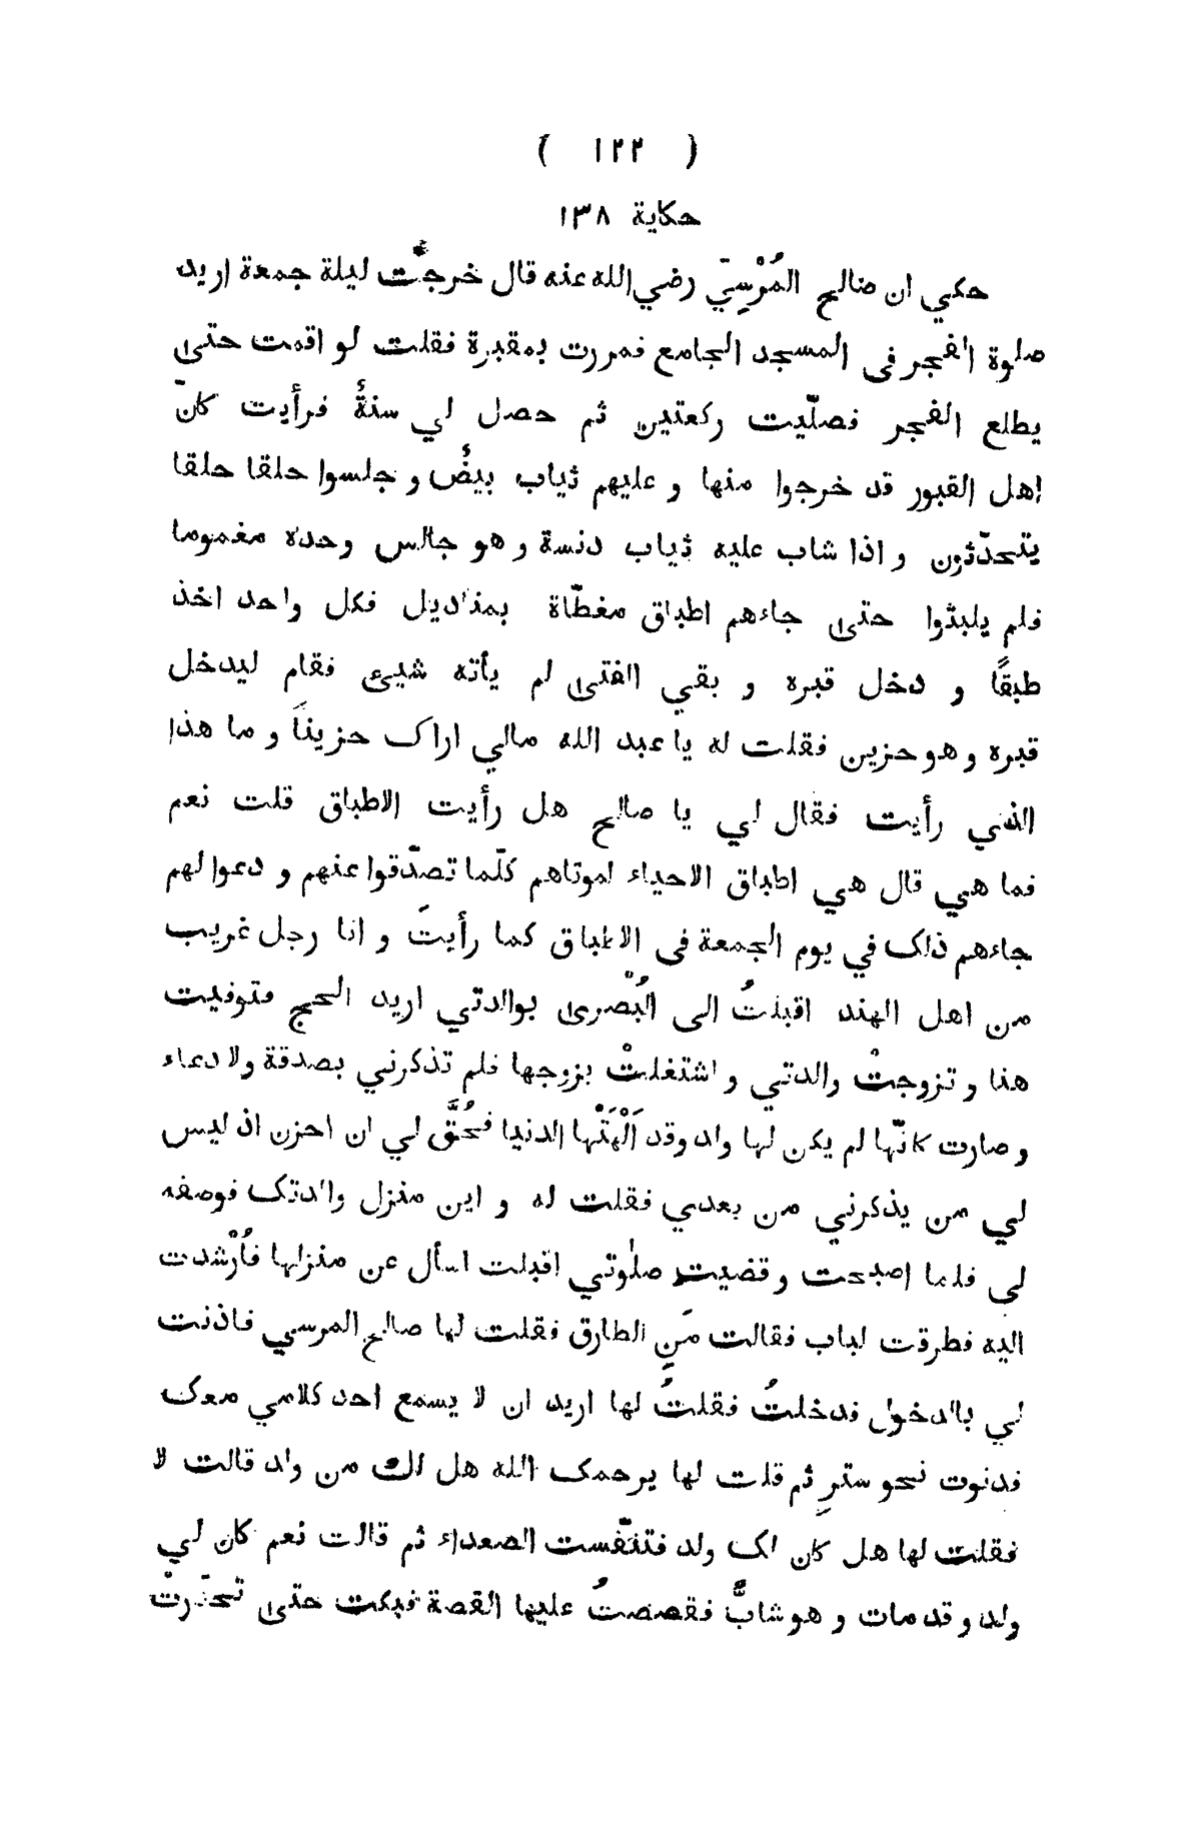 ( ١٢٢ )
حكاية ١٣٨
حكي ان صالح المُرْسِيّ رضي الله عنه قال خرجتُ ليلة جمعة اريد
صلوة الفجر فى المسجد الجامع فمررت بمقبرة فقلت لو اقمت حتى
يطلع الفجر فصلّيت ركعتين ثم حصل لي سنةٌ فرأيت كانّ
اهل القبور قد خرجوا منها و عليهم ثياب بيضٌ و جلسوا حلقا حلقا
يتحدّثون و اذا شاب عليه ثياب دنسة و هو جالس وحده مغموما
فلم يلبثوا حتى جاءهم اطباق مغطّاة بمناديل فكل واحد اخذ
طبقًا و دخل قبره و بقي الفتى لم يأته شيئ فقام ليدخل
قبره و هو حزين فقلت له يا عبد الله مالي اراک حزيناً و ما هذا
الذي رأيت فقال لي يا صالح هل رأيت الاطباق قلت نعم
فما هي قال هي اطباق الاحياء لموتاهم كلّما تصدّقوا عنهم و دعوا لهم
جاءهم ذلک في يوم الجمعة فى الاطباق كما رأيتَ و انا رجل غريب
من اهل الهند اقبلتُ الى البُصْرى بوالدتي اريد الحج فتوفيت
هنا و تزوجتْ والدتي و اشتغلتْ بزوجها فلم تذكرني بصدقة ولا دعاء
و صارت كانّها لم يكن لها ولد وقد اَلْهَتْها الدنيا فحُقَّ لي ان احزن اذ ليس
لي من يذكرني من بعدي فقلت له و اين منزل والدتک فوصفه
لي فلما اصبحت و قضيت صلٰوتي اقبلت اسأل عن منزلها فاُرْشدت
اليه فطرقت لباب فقالت مَنِ الطارق فقلت لها صالح المرسي فاذنت
لي بالدخول فدخلتُ فقلتُ لها اريد ان لا يسمع احد كلامي معک
فدنوت نحو سترٍ ثم قلت لها يرحمک الله هل لک من ولد قالت لا
فقلت لها هل كان لک ولد فتنفّست الصعداء ثم قالت نعم كان لي
ولد و قد مات و هو شابٌّ فقصصتُ عليها القصة فبكت حتى تحدّرتْ